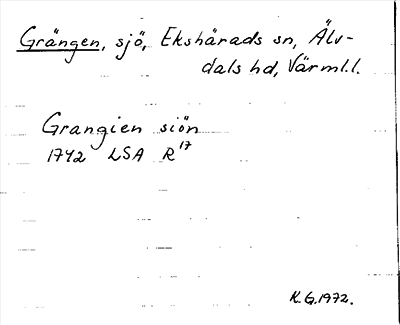 Grängen, sjö, Ekshärads sn, Älv-
dals hd, Värml.l.
Grangien siön
1742 LSA R17
K.G. 1972.